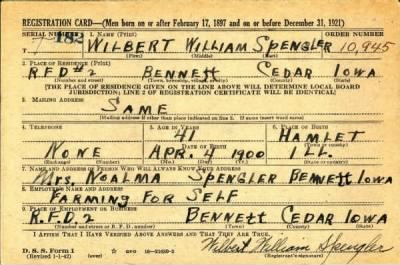 REGISTRATION CARD—(Men born on or after February 17, 1897 and on or before December 31, 1921)
SERIAL NUMBER 1. NAME (Print) ORDER NUMBER
T- 182 WILBERT WILLIAM SPENGLER 10,945
(First) (Middle) (Last)
2. PLACE OF RESIDENCE (Print)
R.F.D#2 BENNETT CEDAR IOWA
(Number and street) (Town, township, village, or city) (County) (State)
[THE PLACE OF RESIDENCE GIVEN ON THE LINE ABOVE WILL DETERMINE LOCAL BOARD
JURISDICTION; LINE 2 OF REGISTRATION CERTIFICATE WILL BE IDENTICAL]
3. MAILING ADDRESS
SAME
[Mailing address if other than place indicated on line 2. If same insert word same]
4. TELEPHONE 5. AGE IN YEARS 6. PLACE OF BIRTH
41 HAMLET
DATE OF BIRTH (Town or county)
NONE APR. 11 1900 ILL.
(Exchange) (Number) (Mo.) (Day) (Yr.) (State or country)
7. NAME AND ADDRESS OF PERSON WHO WILL ALWAYS KNOW YOUR ADDRESS
MRS. NOALMA SPENGLER BENNETT IOWA
8. EMPLOYER'S NAME AND ADDRESS
FARMING FOR SELF
9. PLACE OF EMPLOYMENT OR BUSINESS
R.F.D. 2 BENNETT CEDAR IOWA
(Number and street or R. F. D. number) (Town) (County) (State)
I AFFIRM THAT I HAVE VERIFIED ABOVE ANSWERS AND THAT THEY ARE TRUE.
D. S. S. Form 1
(Revised 1-1-42) (over) Wilbert William Spengler
(Registrant's signature)